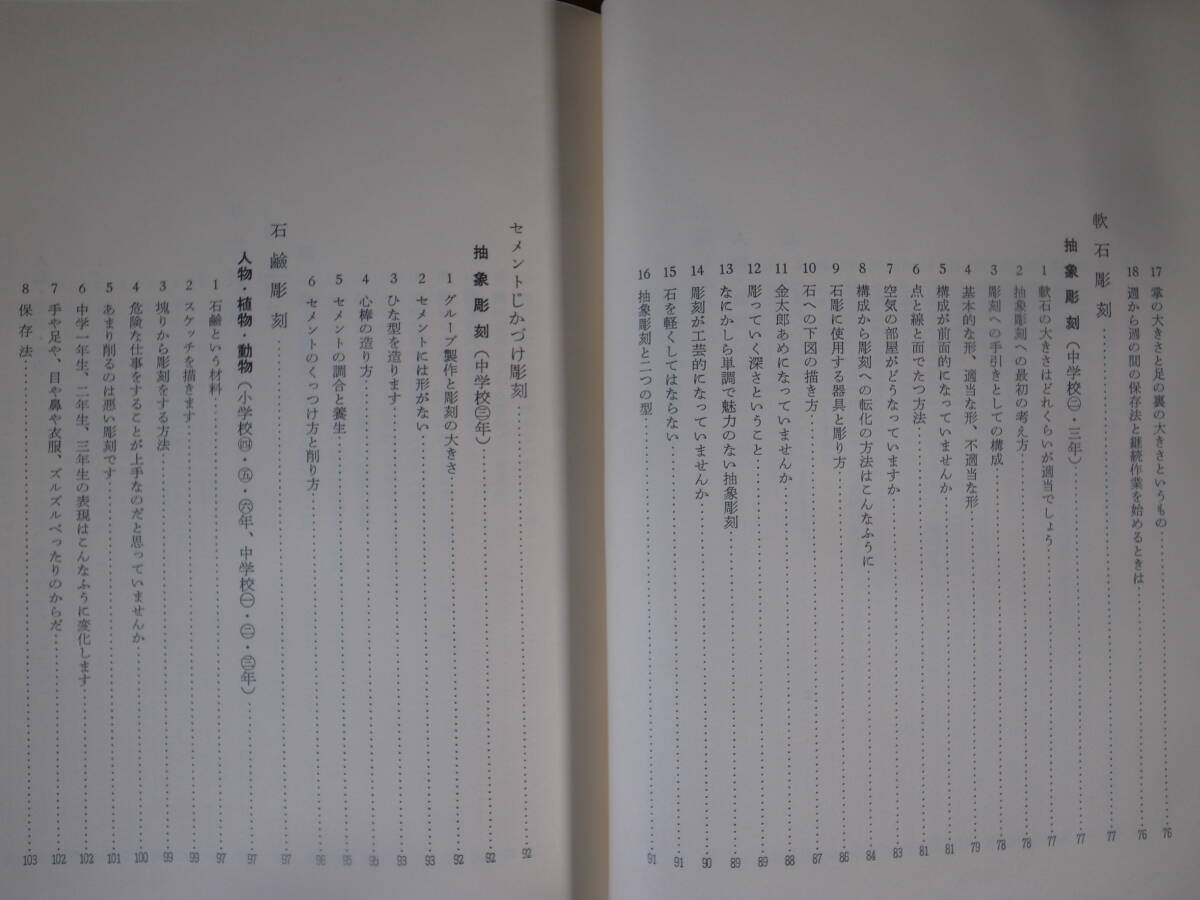 17 掌の大きさと足の裏の大きさというもの 76
18 週から週の間の保存法と継続作業を始めるときは 76
軟石彫刻 77
抽象彫刻（中学校㊁・三年） 77
1 軟石の大きさはどれくらいが適当でしょう 77
2 抽象彫刻への最初の考え方 78
3 彫刻への手引きとしての構成 78
4 基本的な形、適当な形、不適当な形 79
5 構成が前面的になっていませんか 81
6 点と線と面でたつ方法 81
7 空気の部屋がどうなっていますか 83
8 構成から彫刻への転化の方法はこんなふうに 84
9 石彫に使用する器具と彫り方 86
10 石への下図の描き方 87
11 金太郎あめになっていませんか 88
12 彫っていく深さということ 89
13 なにかしら単調で魅力のない抽象彫刻 89
14 彫刻が工芸的になっていませんか 90
15 石を軽くしてはならない 91
16 抽象彫刻と二つの型 91
セメントじかづけ彫刻 92
抽象彫刻（中学校㊂年） 92
1 グループ製作と彫刻の大きさ 92
2 セメントには形がない 93
3 ひな型を造ります 93
4 心棒の造り方 95
5 セメントの調合と養生 95
6 セメントのくっつけ方と削り方 96
石鹼彫刻 97
人物・植物・動物（小学校㊃・㊄・㊅年、中学校㊀・㊁・㊂年） 97
1 石鹼という材料 97
2 スケッチを描きます 99
3 塊りから彫刻をする方法 99
4 危険な仕事をすることが上手なのだと思っていませんか 100
5 あまり削るのは悪い彫刻です 101
6 中学一年生、二年生、三年生の表現はこんなふうに変化します 102
7 手や足や、目や鼻や衣服、ズルズルべったりのからだ 102
8 保存法 103